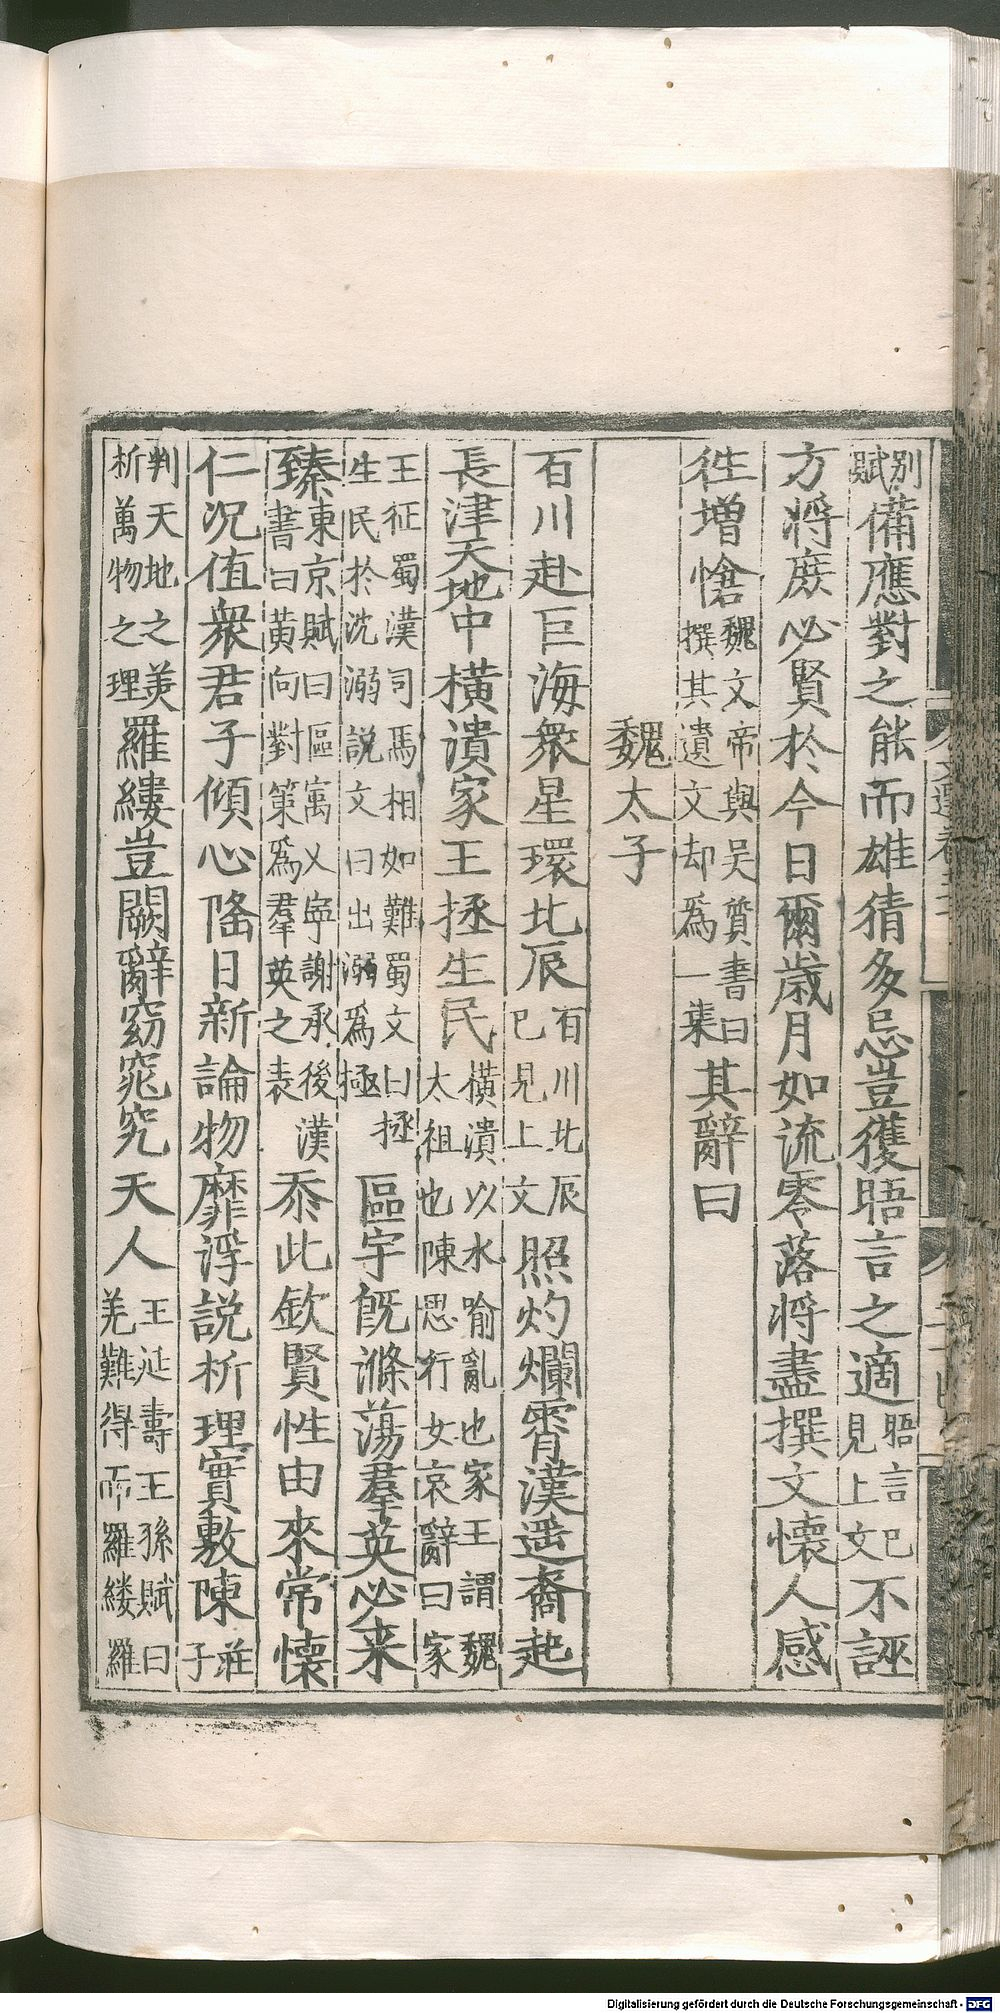 別賦備應對之能而雄猜多忌豈獲晤言之適晤言已見上文不誣
方將庶必賢於今日爾歲月如流零落將盡撰文懷人感
徃增愴魏文帝與吳質書曰撰其遺文却爲一集其辭曰
魏太子
百川赴巨海衆星環北辰百川北辰已見上文照灼爛霄漢遥裔起
長津天地中橫潰家王拯生民橫潰以水喻亂也家王謂魏太祖也陳思行女哀辭曰家
王征蜀漢司馬相如難蜀文曰拯生民於沈溺説文曰出溺爲極區宇旣滌蕩羣英必来
臻東京賦曰區寓乂寧謝承後漢書曰黃向對策爲羣英之表忝此欽賢性由來常懷
仁況值衆君子傾心隆日新論物靡浮説析理實敷陳莊子
判天地之美析萬物之理羅縷豈闕辭窈窕究天人王延壽王孫賦曰羌難得而羅縷羅
Digitalisierung gefördert durch die Deutsche Forschungsgemeinschaft - DFG